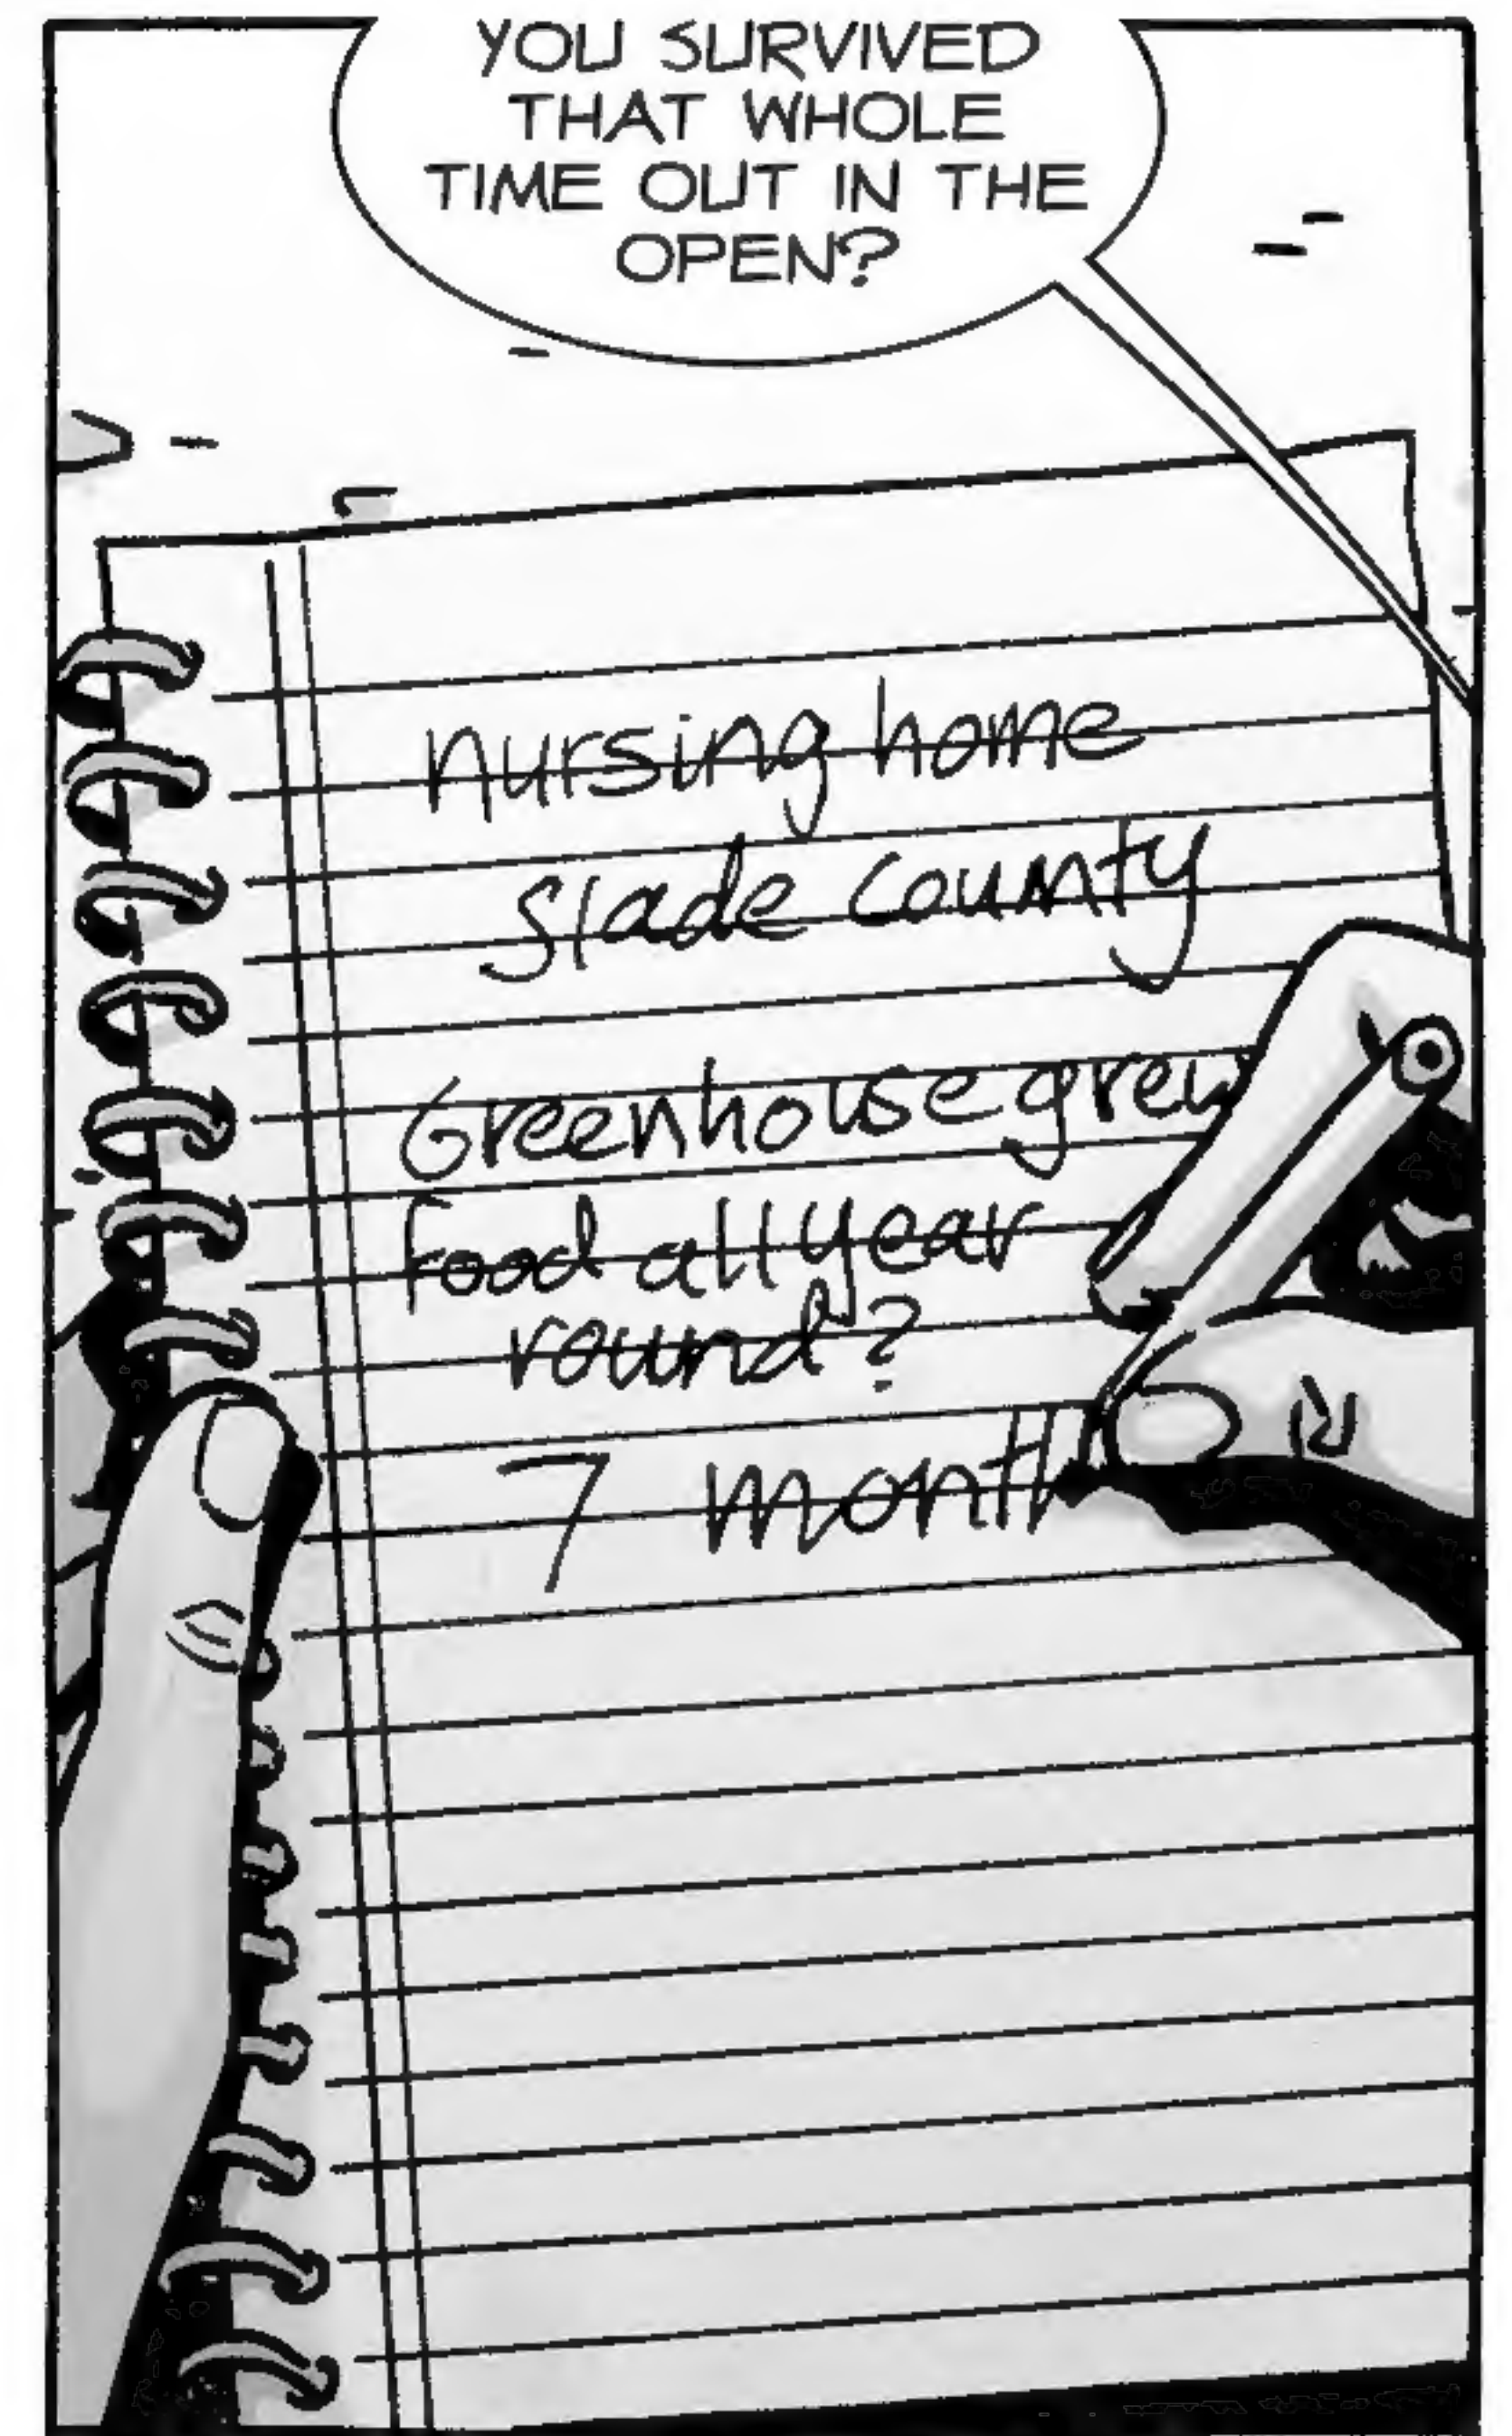 YOU SURVIVED
THAT WHOLE
TIME OUT IN THE
OPEN?
nursing home
slade county
Greenhouse grew
food all year
round?
7 month